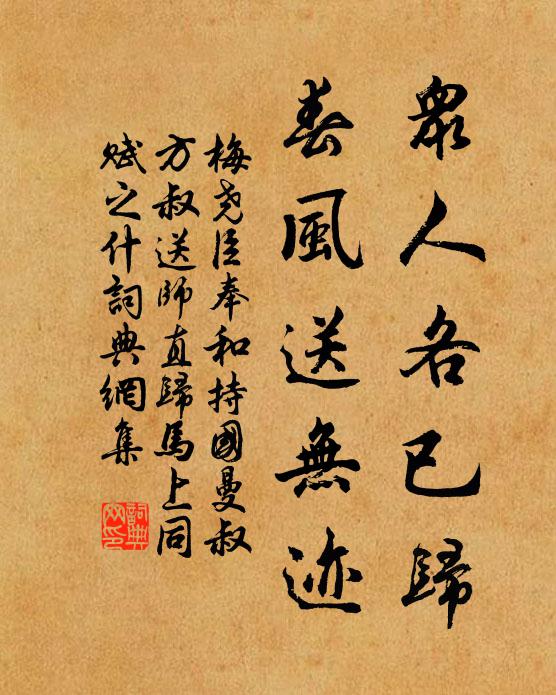 衆人各已歸
春風送無迹
梅尧臣奉和持國曼叔
方叔送師直歸馬上同
賦之什詞典網集
詞典
网印